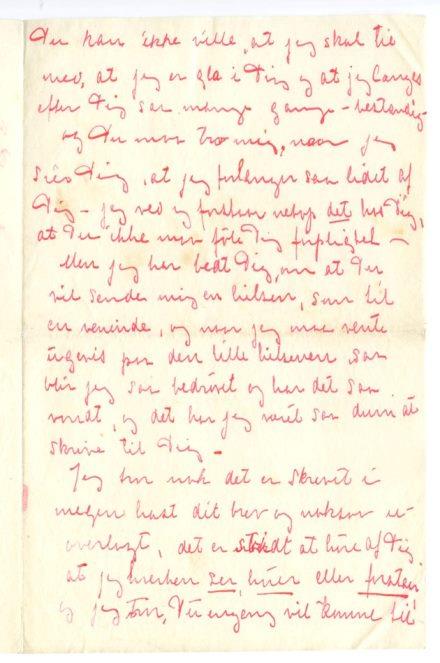 Du kan ikke ville, at jeg skal tie
med, at jeg er gla i Dig og at jeg længes
efter Dig saa mange gange – bestandig –
og Du maa tro mig, naar jeg
sier Dig, at jeg forlanger saa lidet af
Dig – jeg ved og forstaar netop det hos Dig,
at Du ikke maa föle Dig forpligtet –
Men jeg har bedt Dig om at Du
vil sende mig en hilsen, som til
en veninde, og naar jeg maa vente
ugevis paa den lille hilsenen, saa
blir jeg saa bedrövet og har det saa
vondt, og det har jeg været saa dum at
skrive til Dig –
Jeg tror nok det er skrevet i
megen hast dit brev og noksaa u-
overlagt, det er at höre af Dig
at jeg hverken ser, hörer eller forstaar
og jeg tror, Du engang vil komme til